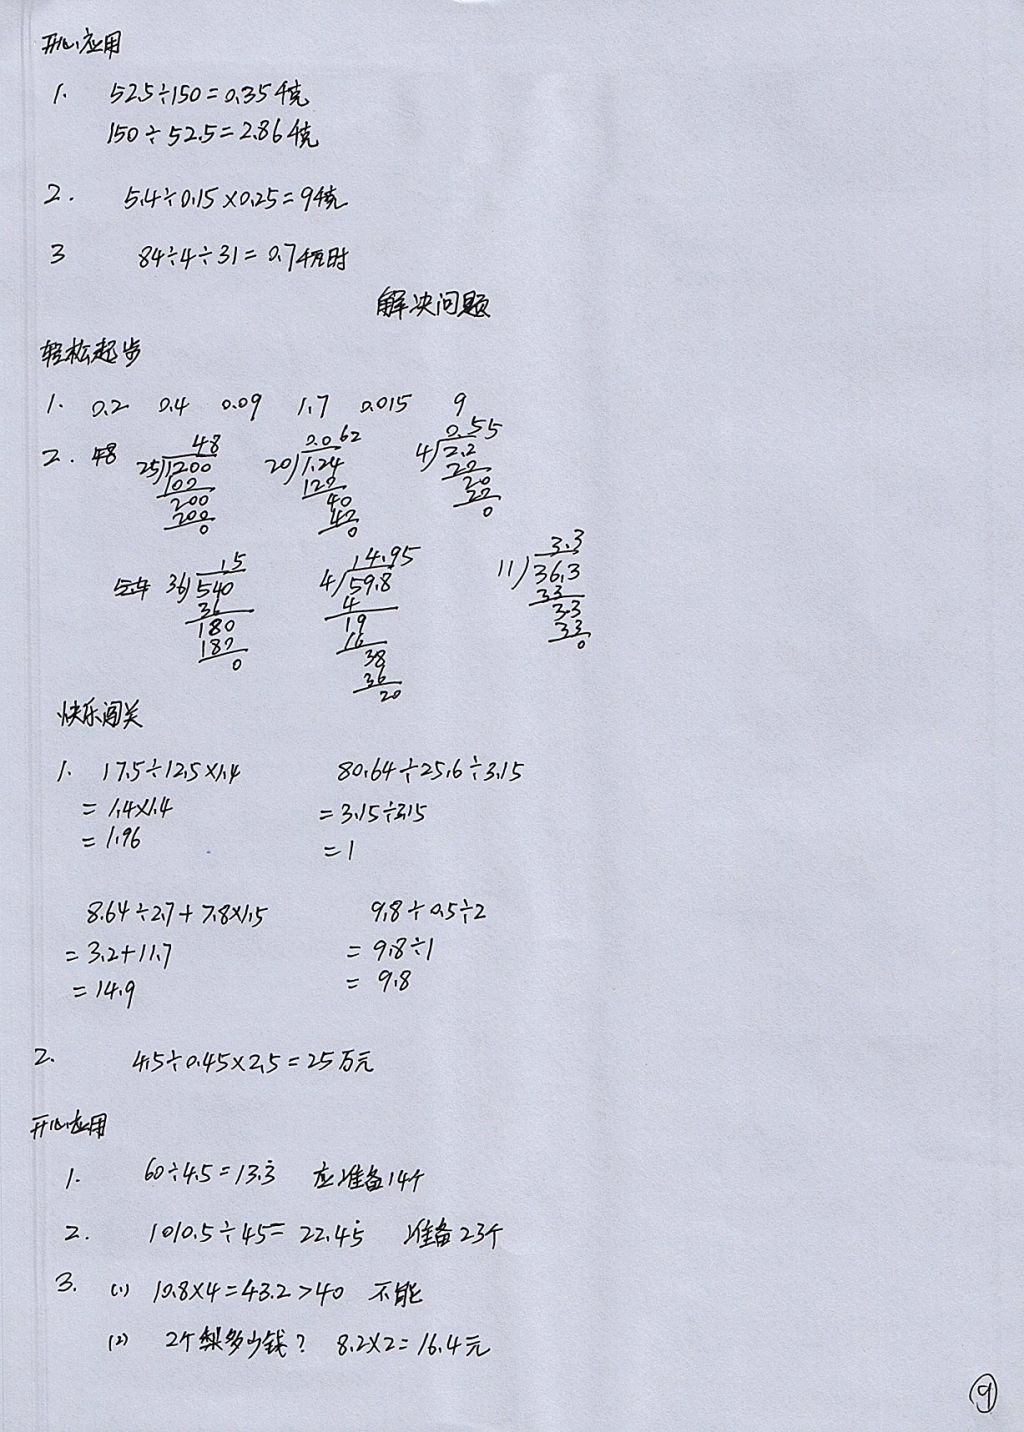 开心应用
1. 52.5÷150=0.35千克
150÷52.5=2.86千克
2. 5.4÷0.15×0.25=9千克
3 84÷4÷31=0.7千瓦时
解决问题
轻松起步
1. 0.2 0.4 0.09 1.7 0.015 9
2. 48
48
25)1200
100
200
200
0
0.062
20)1.24
120
40
40
0
0.55
4)2.2
20
20
20
0
15
36)540
36
180
180
0
14.95
4)59.8
4
19
16
38
36
20
3.3
11)36.3
33
3.3
33
0
快乐闯关
1. 17.5÷12.5×1.4 80.64÷25.6÷3.15
=1.4×1.4 =3.15÷3.15
=1.96 =1
8.64÷2.7+7.8×1.5 9.8÷0.5÷2
=3.2+11.7 =9.8÷1
=14.9 =9.8
2. 4.5÷0.45×2.5=25万元
开心应用
1. 60÷4.5=13.3̇ 应准备14个
2. 1010.5÷45=22.45̇ 准备23个
3. (1) 10.8×4=43.2>40 不能
(2) 2个梨多少钱? 8.2×2=16.4元
9